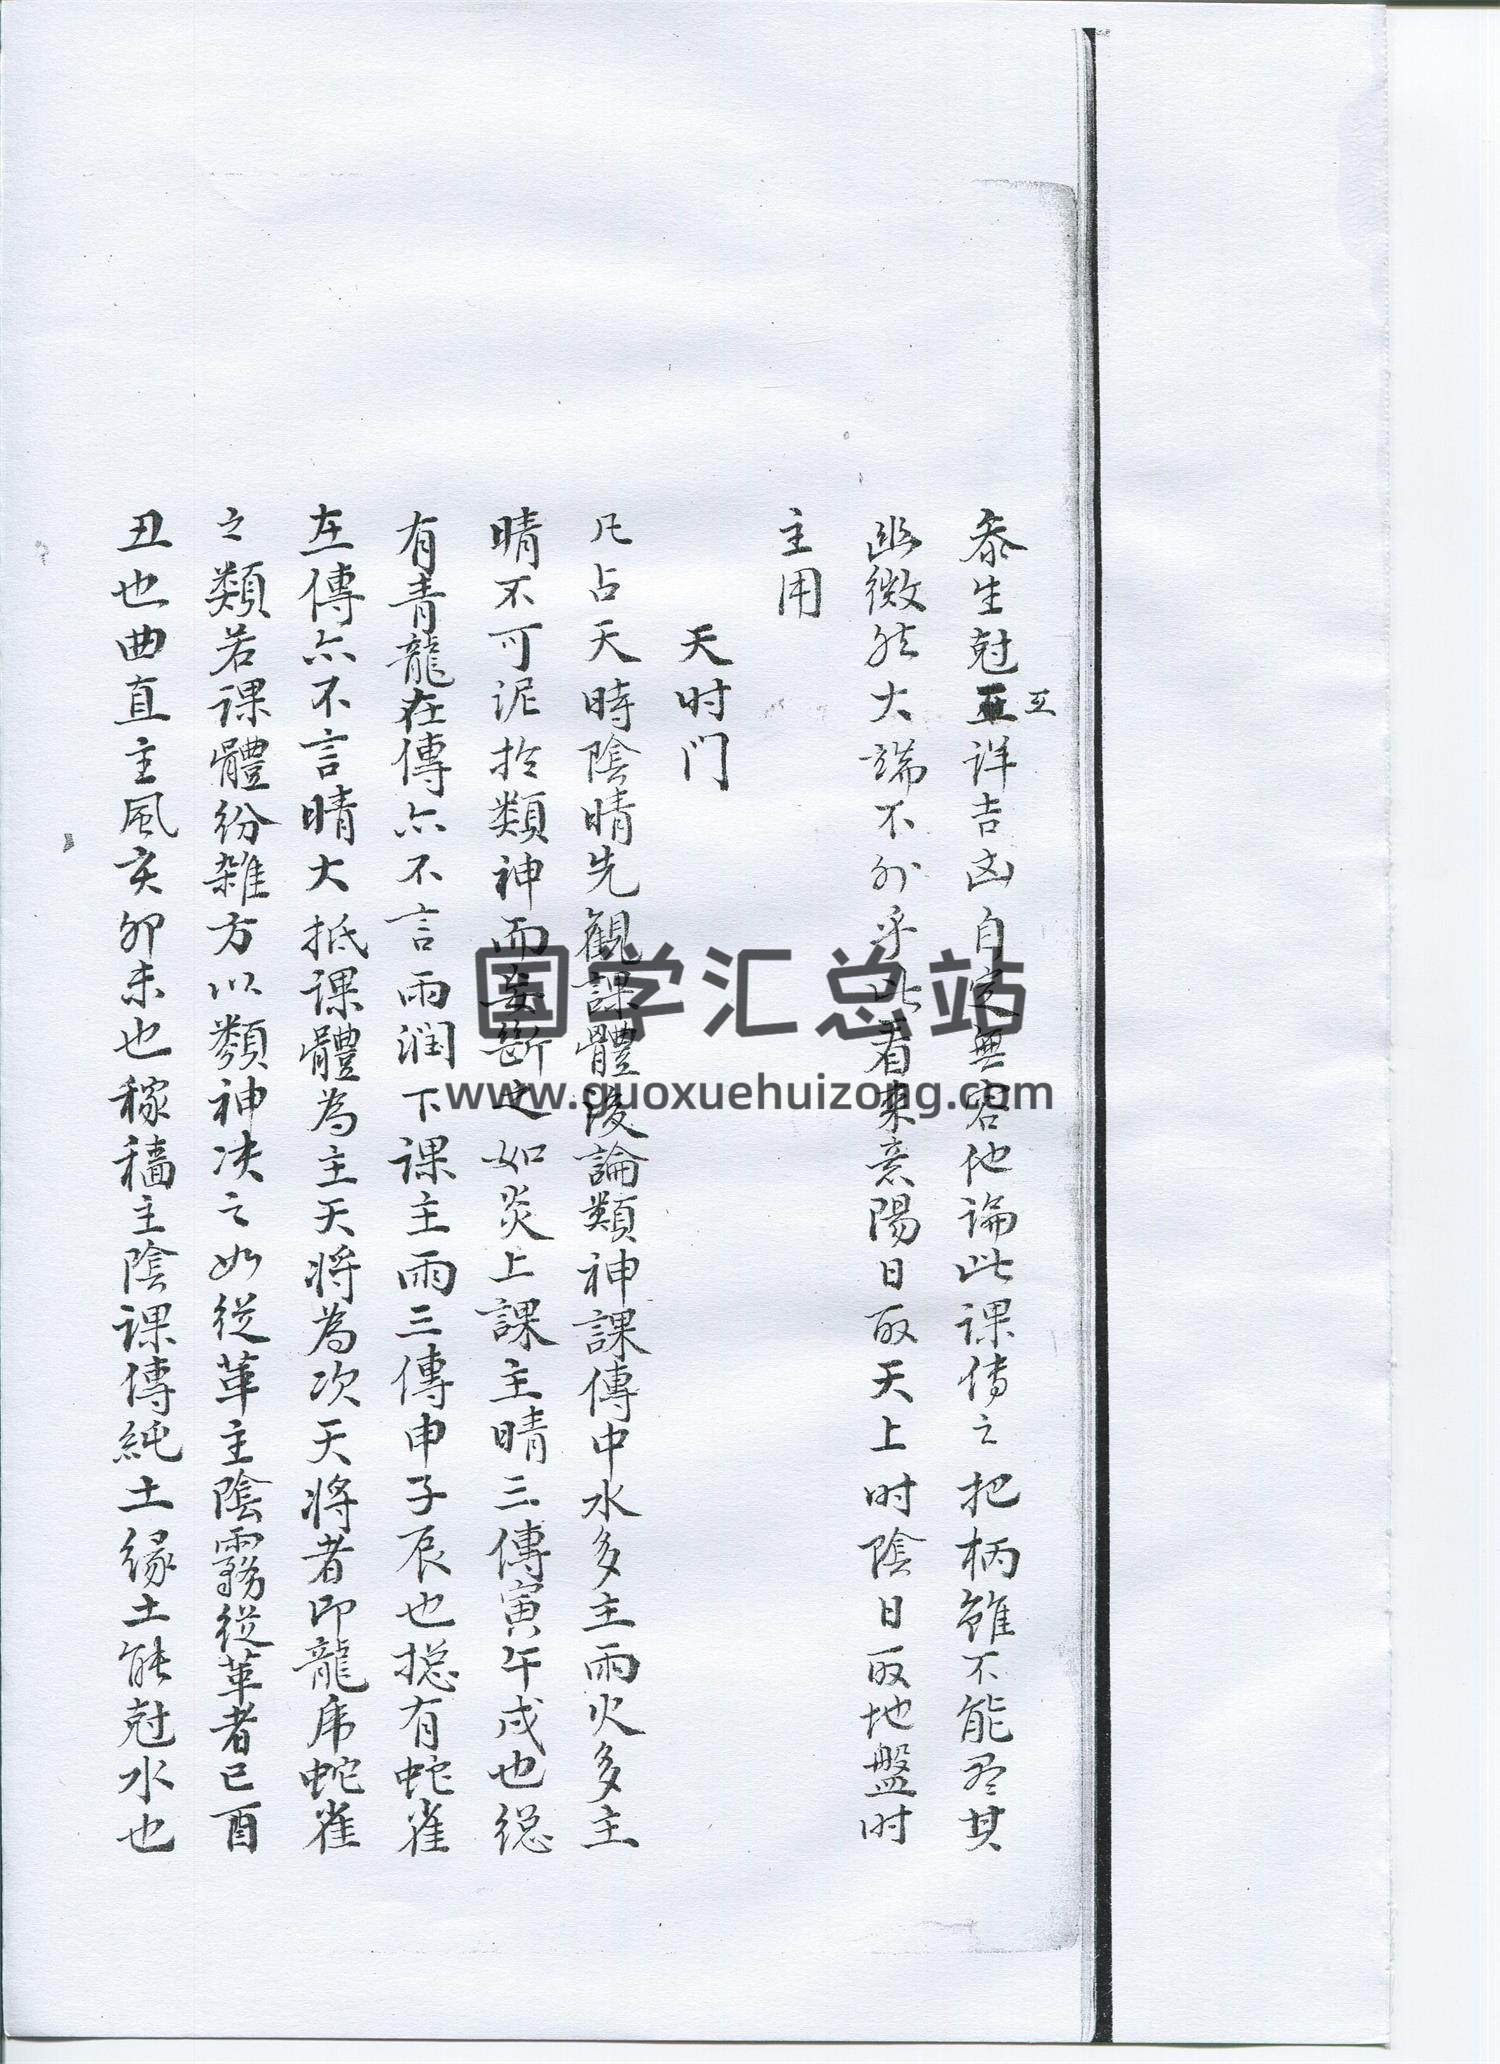 叅生尅互詳吉凶自定無容他論此課傳之把柄雖不能尽其
互
幽微然大端不外乎此看來意陽日取天上时陰日取地盤时
主用
天时门
凡占天時陰晴先觀課體後論類神課傳中水多主雨火多主
晴不可泥扵類神而妄斷之如炎上課主晴三傳寅午戌也縂
有青龍在傳亦不言雨润下課主雨三傳申子辰也捴有蛇雀
在傳亦不言晴大抵课體為主天将為次天将者即龍虎蛇雀
之類若课體纷雜方以類神决之如從革主陰霧從革者巳酉
丑也曲直主風亥卯未也稼穡主陰课傳純土緣土能尅水也
国学汇总站
www.guoxuehuizong.com